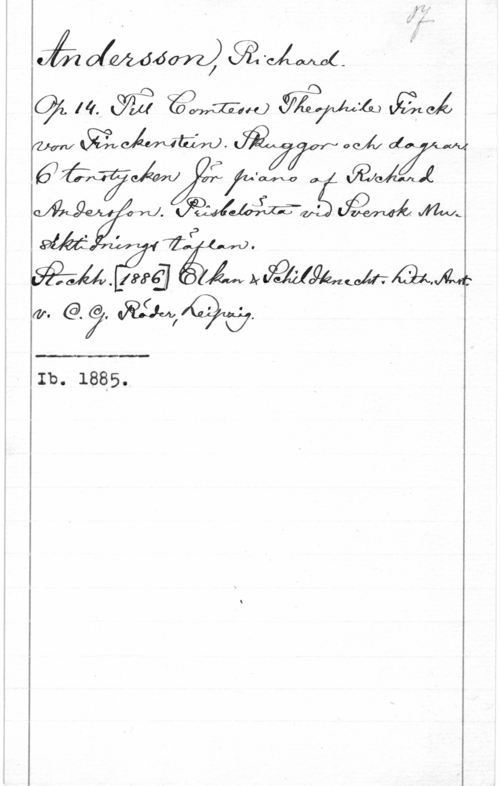 Andersson, Richard.
Op. 14. Till Comtesse Theophile Finck
von Finckenstein. Skuggor och dagrar
6 tonstycken för piano af Richard
Andersson. Prisbelönta vid Svensk Mu-
siktidnings täflan.
Stockh. [1886] Elkan & Schildknecht. Lith. Anst.
v. C. G. Röder, Leipzig.
Ib. 1885.